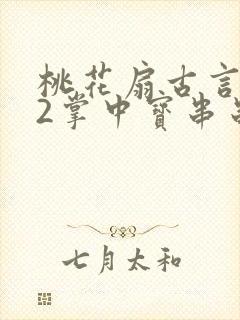 桃花扇古言
2掌中寳串
七月太和